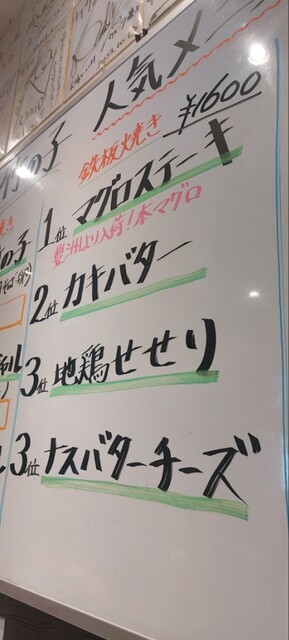 人気メニ
鉄板焼き
¥1600
1位 マグロステーキ
豊洲より入荷!本マグロ
2位 カキバター
3位 地鶏せせり
3位 ナスバターチーズ
の子
の子